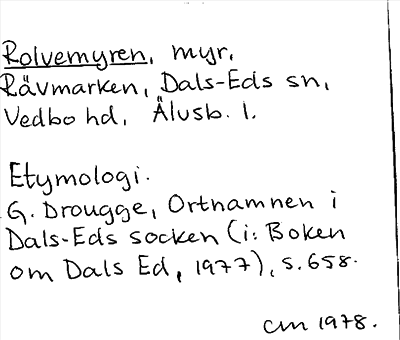 Rolvemyren, myr,
Rävmarken, Dals-Eds sn,
Vedbo hd, Älvsb. l.
Etymologi.
G. Drougge, Ortnamnen i
Dals-Eds socken (i: Boken
om Dals Ed, 1977), s. 658.
CM 1978.